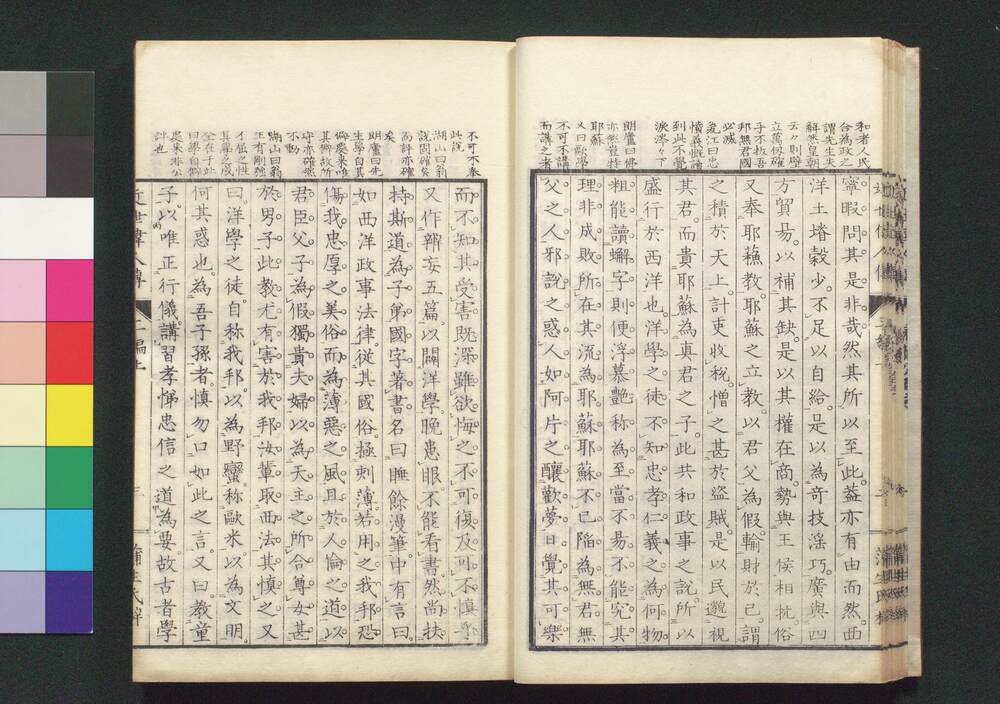 和者人民
合為政之
謂先生失
辭然皇朝
云々則壁
立萬仭確
乎不抜吾
邦無君國
必滅
寛江曰忠
憤義慨讀
到此不覺
涙涔々下
朗廬曰佛
亦然豈特
耶蘇
又曰歐學
不可不講
而講之者
寧暇問其是非哉然其所以至此蓋亦有由而然西
洋土堉穀少不足以自給是以為奇技淫巧廣與四
方貿易以補其缺是以其權在商勢與王侯相抗俗
又奉耶蘓教耶蘇之立教以君父為假輸財於己謂
之積於天上計吏收稅憎之甚於盜賊是以民邈視
其君而貴耶蘇為真君之子此共和政事之說所以
盛行於西洋也洋學之徒不知忠孝仁義之為何物
粗能讀蠏字則便浮慕艷称為至當不易不能究其
理非成敗所在其流為耶蘇耶蘇不已陥為無君無
父之人邪說之惑人如阿片之釀歡夢日覺其可樂
不可不奉
此說
湖山曰翁
說固確矣
而評亦確
矣
朗廬曰先
生學自其
侮慶來唯
其郷故所
守亦確然
不動
湖山曰翁
正有剛強
不屈之性
其學之成
全在于此
曰學自侮
慶來非公
評也
而不知其受害既深雖欲悔之不可復及可不慎乎
又作辨妄五篇以闢洋學晚患眼不能看書然尚扶
持斯道為子弟國字著書名曰睡餘漫筆中有言曰
如西洋政事法律從其國俗極刺薄若用之我邦恐
傷我忠厚之美俗而為薄惡之風且於人倫之道以
君臣父子為假獨貴夫婦以為天主之所合尊女甚
於男子此教尤有害於我邦汝輩取西法其慎之又
曰洋學之徒自称我邦以為野蠻称歐米以為文明
何其惑也為吾子孫者慎勿口如此之言又曰教童
子以唯正行儀講習孝悌忠信之道為要故古者學
近世偉人傳
二編上
蒲生氏梓